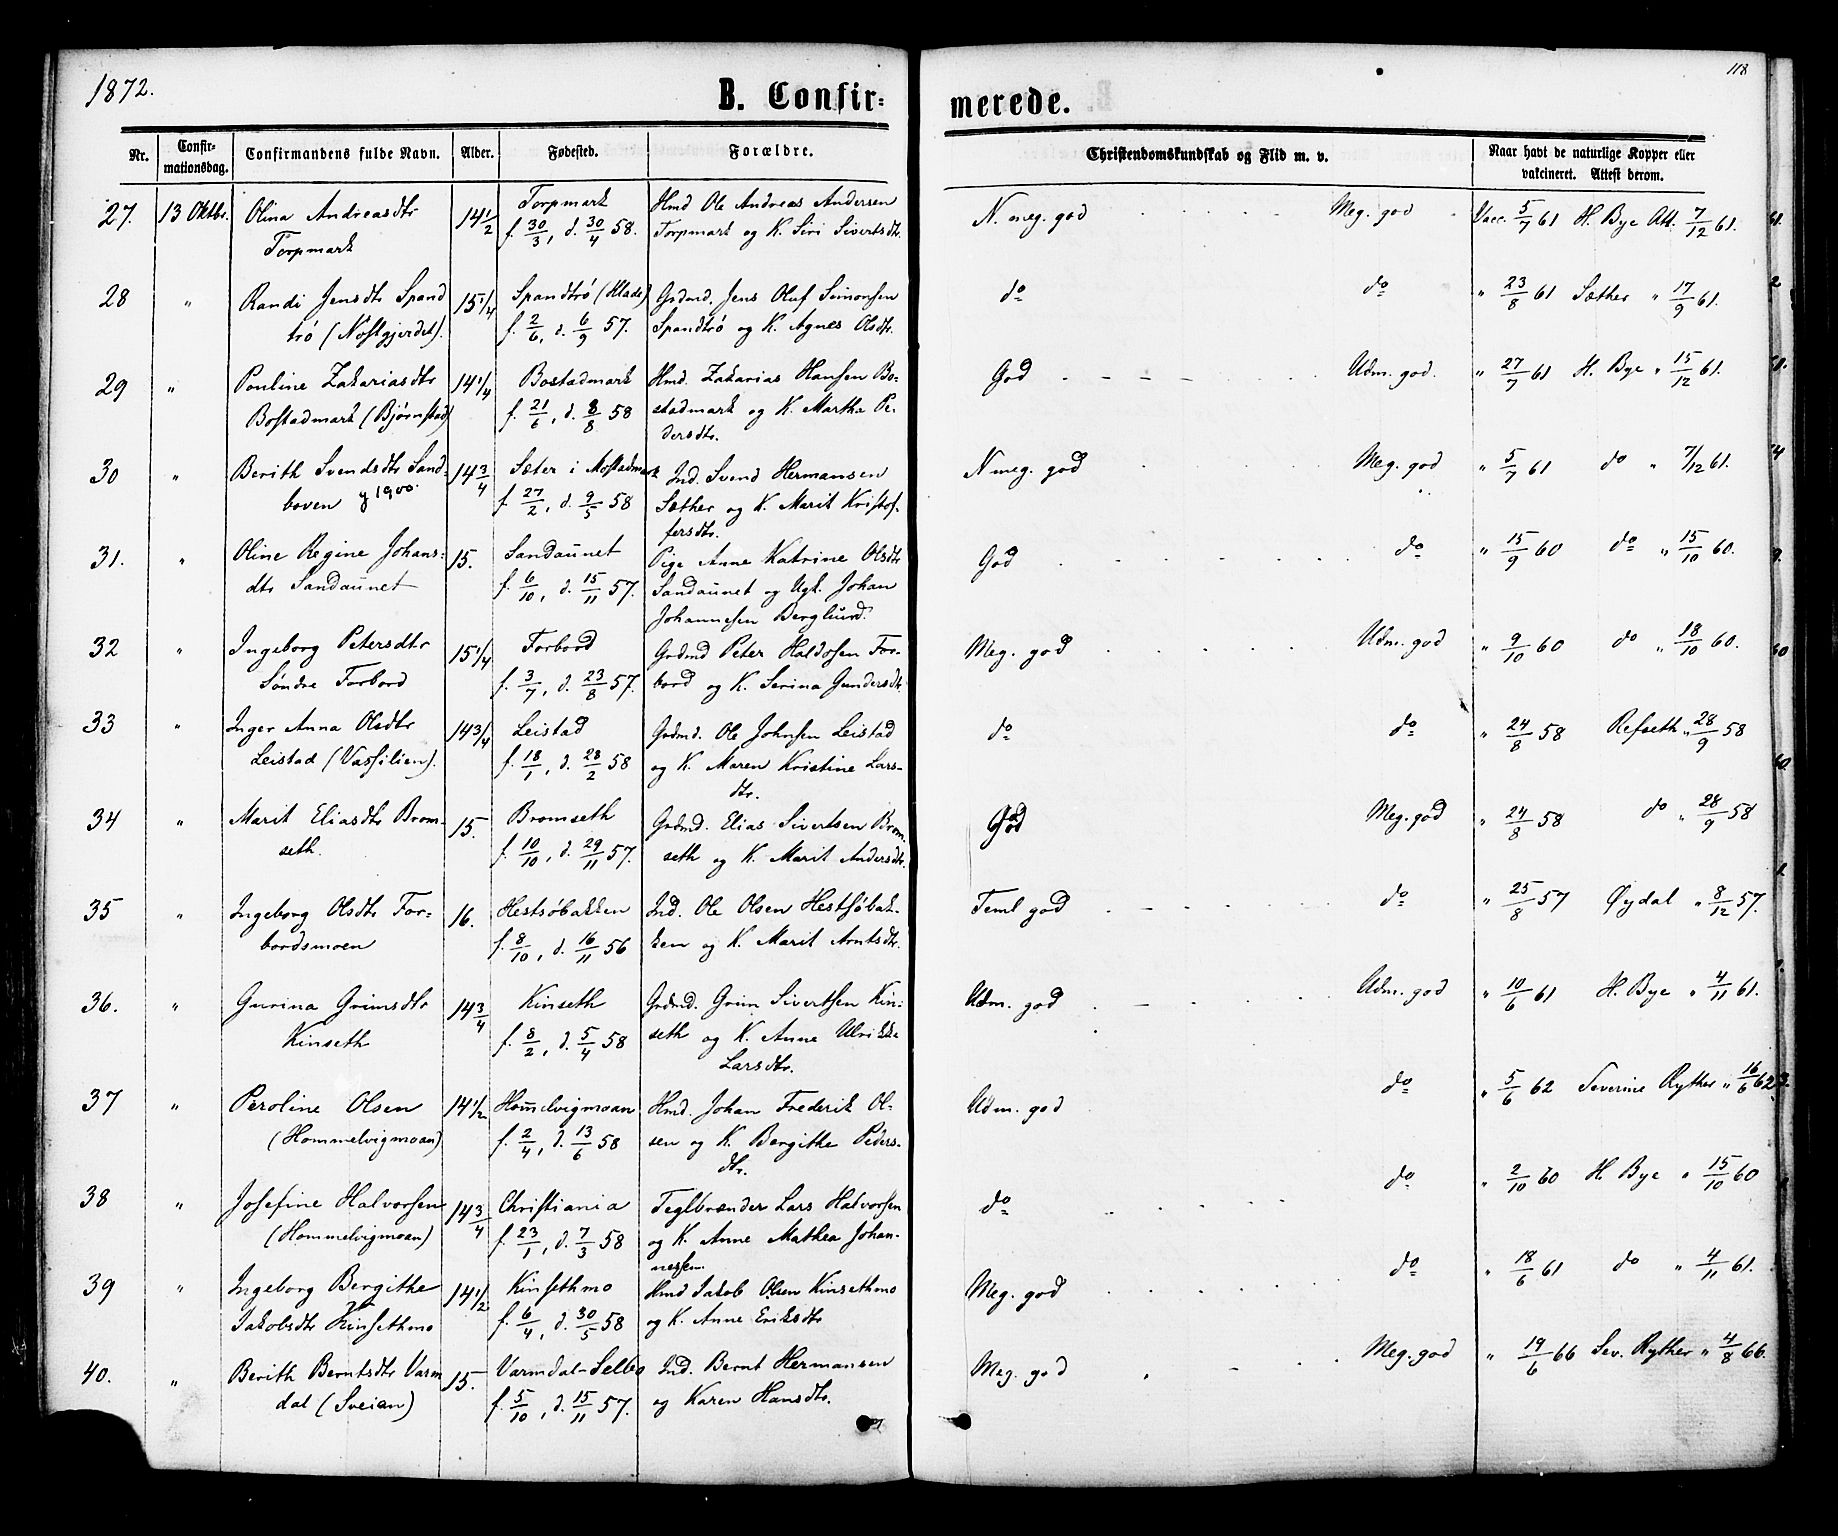 118
1872.
B. Confirmerede.
Nr. Confirmationsdag. Confirmandens fulde Navn. Alder. Fødested. Forældre. Christendomskundskab og Flid m. v. Naar havt de naturlige Kopper eller vakcineret. Attest derom.
27. 13 Oktbr. Olina Andreasdtr 14 1/2 Torpmark Hmd Ole Andreas Andersen N. meg. god Meg. god Vacc. 5/7 61 H. Bye Att. 7/12 61.
Torpmark f. 30/3, d. 30/4 58. Torpmark og K. Siri Sivertsdtr.
28 " Randi Jensdtr Spand 15 1/4 Spandtrö (Hlade) Grdmd. Jens Oluf Simonsen do do " 23/8 61 Sæther " 17/9 61.
trö (Nöstgjerdet). f. 2/6, d. 6/9 57. Spandtrö og K. Agnes Olsdtr.
29 " Pouline Zakariasdtr 14 1/4 Bostadmark Hmd. Zakarias Hansen Bo- God Udm. god. " 27/7 61 H. Bye " 15/12 61.
Bostadmark (Bjørnstad) f. 21/6, d. 8/8 58 stadmark og K. Martha Pe-
dersdtr.
30 " Berith Svendsdtr Sand- 14 3/4 Sæter i Mostadmark Ind. Svend Hermansen N meg. god Meg. god " 5/7 61 do " 7/12 61.
boven g 1900. f. 27/2, d. 9/5 58 Sæther og K. Marit Kristof-
fersdtr.
31. " Oline Regine Johans- 15. Sandaunet Pige Anne Katrine Olsdtr God do " 15/9 60 do " 15/10 60.
dtr Sandaunet f. 6/10, d. 15/11 57. Sandaunet og Ugk. Johan
Johannesen Berglund.
32 " Ingeborg Petersdtr 15 1/4 Forbord Grdmd Peter Haldosen For- Meg. god Udm. god " 9/10 60 do " 18/10 60.
Söndre Forbord f. 3/7, d. 23/8 57. bord og K. Serina Gundersdtr
33 " Inger Anna Olsdtr 14 3/4 Leistad Grdmd. Ole Johnsen Leistad do do " 24/8 58 Refseth " 28/9 58
Leistad (Vassilien). f. 18/1, d. 28/2 58 og K. Maren Kristine Lars-
dtr.
34 " Marit Eliasdtr Brom- 15. Bromseth Grdmd. Elias Sivertsen Brom God Meg. god " 24/8 58 do " 28/9 58
seth. f. 10/10, d. 29/11 57. seth og K. Marit Andersdtr.
35 " Ingeborg Olsdtr For- 16. Hestsöbakken Ind. Ole Olsen Hestsöbak- Teml god do " 25/8 57 Øydal " 8/12 57.
bordsmoen f. 8/10, d. 16/11 56 ken og K. Marit Arntsdtr.
36. " Gurina Grimsdtr 14 3/4 Kinseth Grdmd. Grim Sivertsen Kin- Udm. god Udm. god " 10/6 61 H. Bye " 4/11 61.
Kinseth f. 8/2, d. 5/4 58 seth og K. Anne Ulrikke
Larsdtr.
37 " Peroline Olsen 14 1/2 Hommelvigmoan Hmd. Johan Frederik Ol- Udm. god do " 5/6 62 Severine Ryther " 16/6 62
(Hommelvigmoan) f. 2/4, d. 13/6 58 sen og K. Bergithe Peders-
dtr.
38 " Josefine Halvorsen 14 3/4 Christiania Teglbrænder Lars Halvorsen do do " 2/10 60 H. Bye " 15/10 60
(Hommelvigmoan) f. 23/1, d. 7/3 58 og K. Anne Mathea Johan-
nessen.
39 " Ingeborg Bergithe 14 1/2 Kinsethmo Hmd Jakob Olsen Kinsethmo Meg. god do " 18/6 61 do " 4/11 61.
Jakobsdtr Kinsethmo f. 6/4, d. 30/5 58 og K. Anne Eriksdtr
40. " Berith Berntsdtr Varm 15. Varmdal-Selbo Ind. Bernt Hermansen Meg. god Meg. god " 19/6 66 Sev. Ryther " 4/8 66.
dal (Sveian) f. 5/10, d. 15/11 57. og Karen Hansdtr.